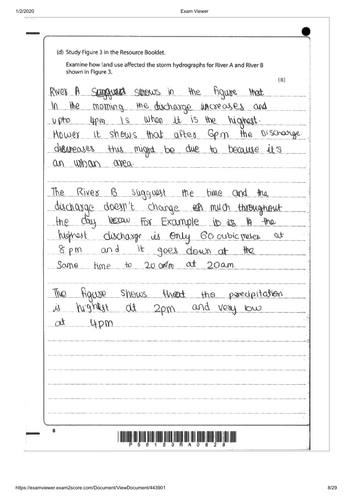 1/2/2020 Exam Viewer
(d) Study Figure 3 in the Resource Booklet.
Examine how land use affected the storm hydrographs for River A and River B
shown in Figure 3.
(8)
River A shows in the figure that
In the morning the discharge increases and
upto 4pm Is when it is the highest.
Hower it shows that after 6pm the Discharge
decreases this might be due to because it's
an urban area.
The River B suggusst the time and the
discharge doesn't change much throughout
the day For Example the
highest discharge is only 60 cubic metes at
8 pm and it goes down at the
Same time to 20 at 20am
The figure shows that the precipitation
is highest at 2pm and very low
at 4pm
8
P56193RA0828
https://examviewer.exam2score.com/Document/ViewDocument/443901 8/29